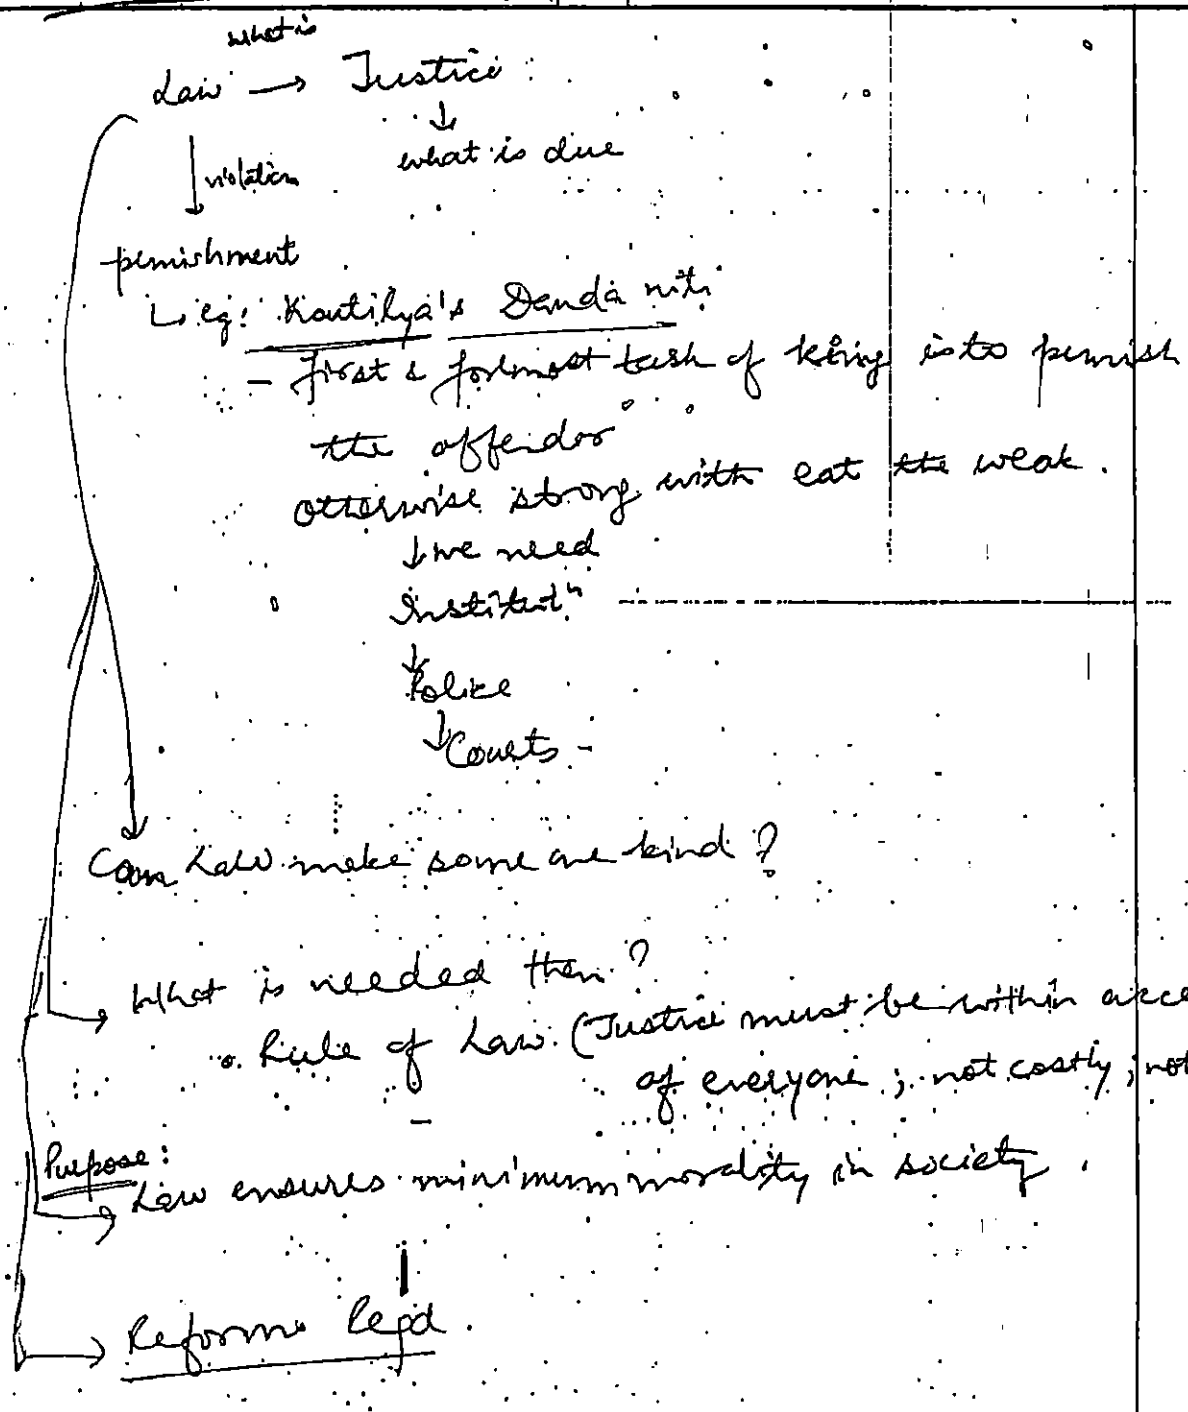 what is
Law → Justice
↓
↓ violation what is due
punishment
↳ eg: Kautilya's Danda niti
- first & formost task of king is to punish
the offendor
otherwise strong with eat the weak.
↓ we need
Institutⁿ
↓
Police
↓ Courts -
Can Law make some one kind ?
→ What is needed then ?
Rule of Law (Justice must be within acce
of everyone ; not costly ; not
Purpose :
→ Law ensures minimum morality in society .
→ Reforms Reqd .